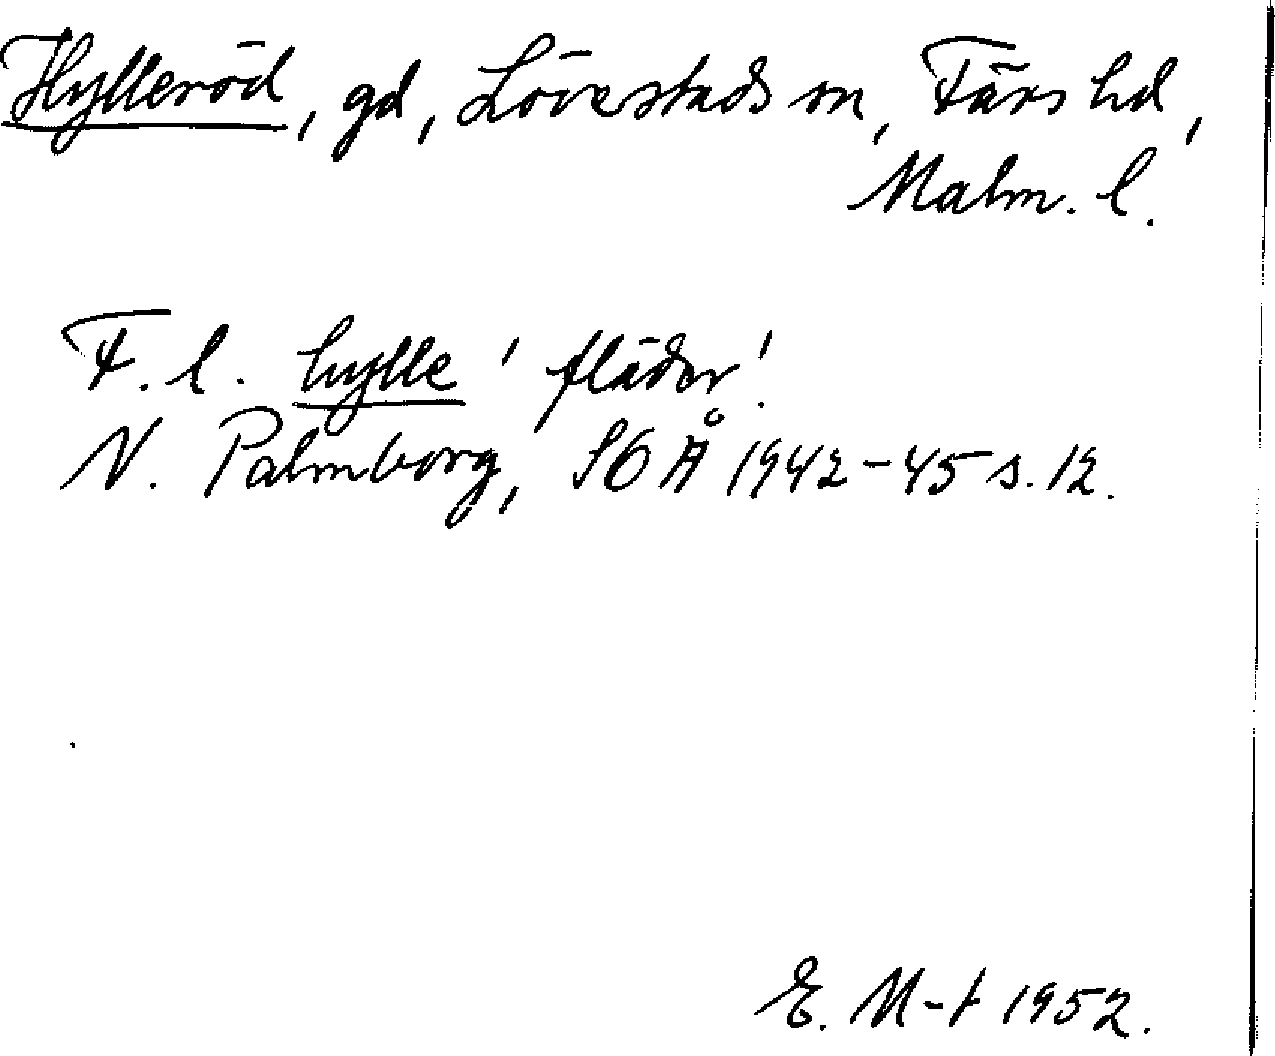 Hylleröd, gd, Lövestads sn, Färs hd,
Malm. l.
F. l. hylle 'fläder'.
N. Palmborg, SOÅ 1942-45 s. 12.
E. M-t 1952.